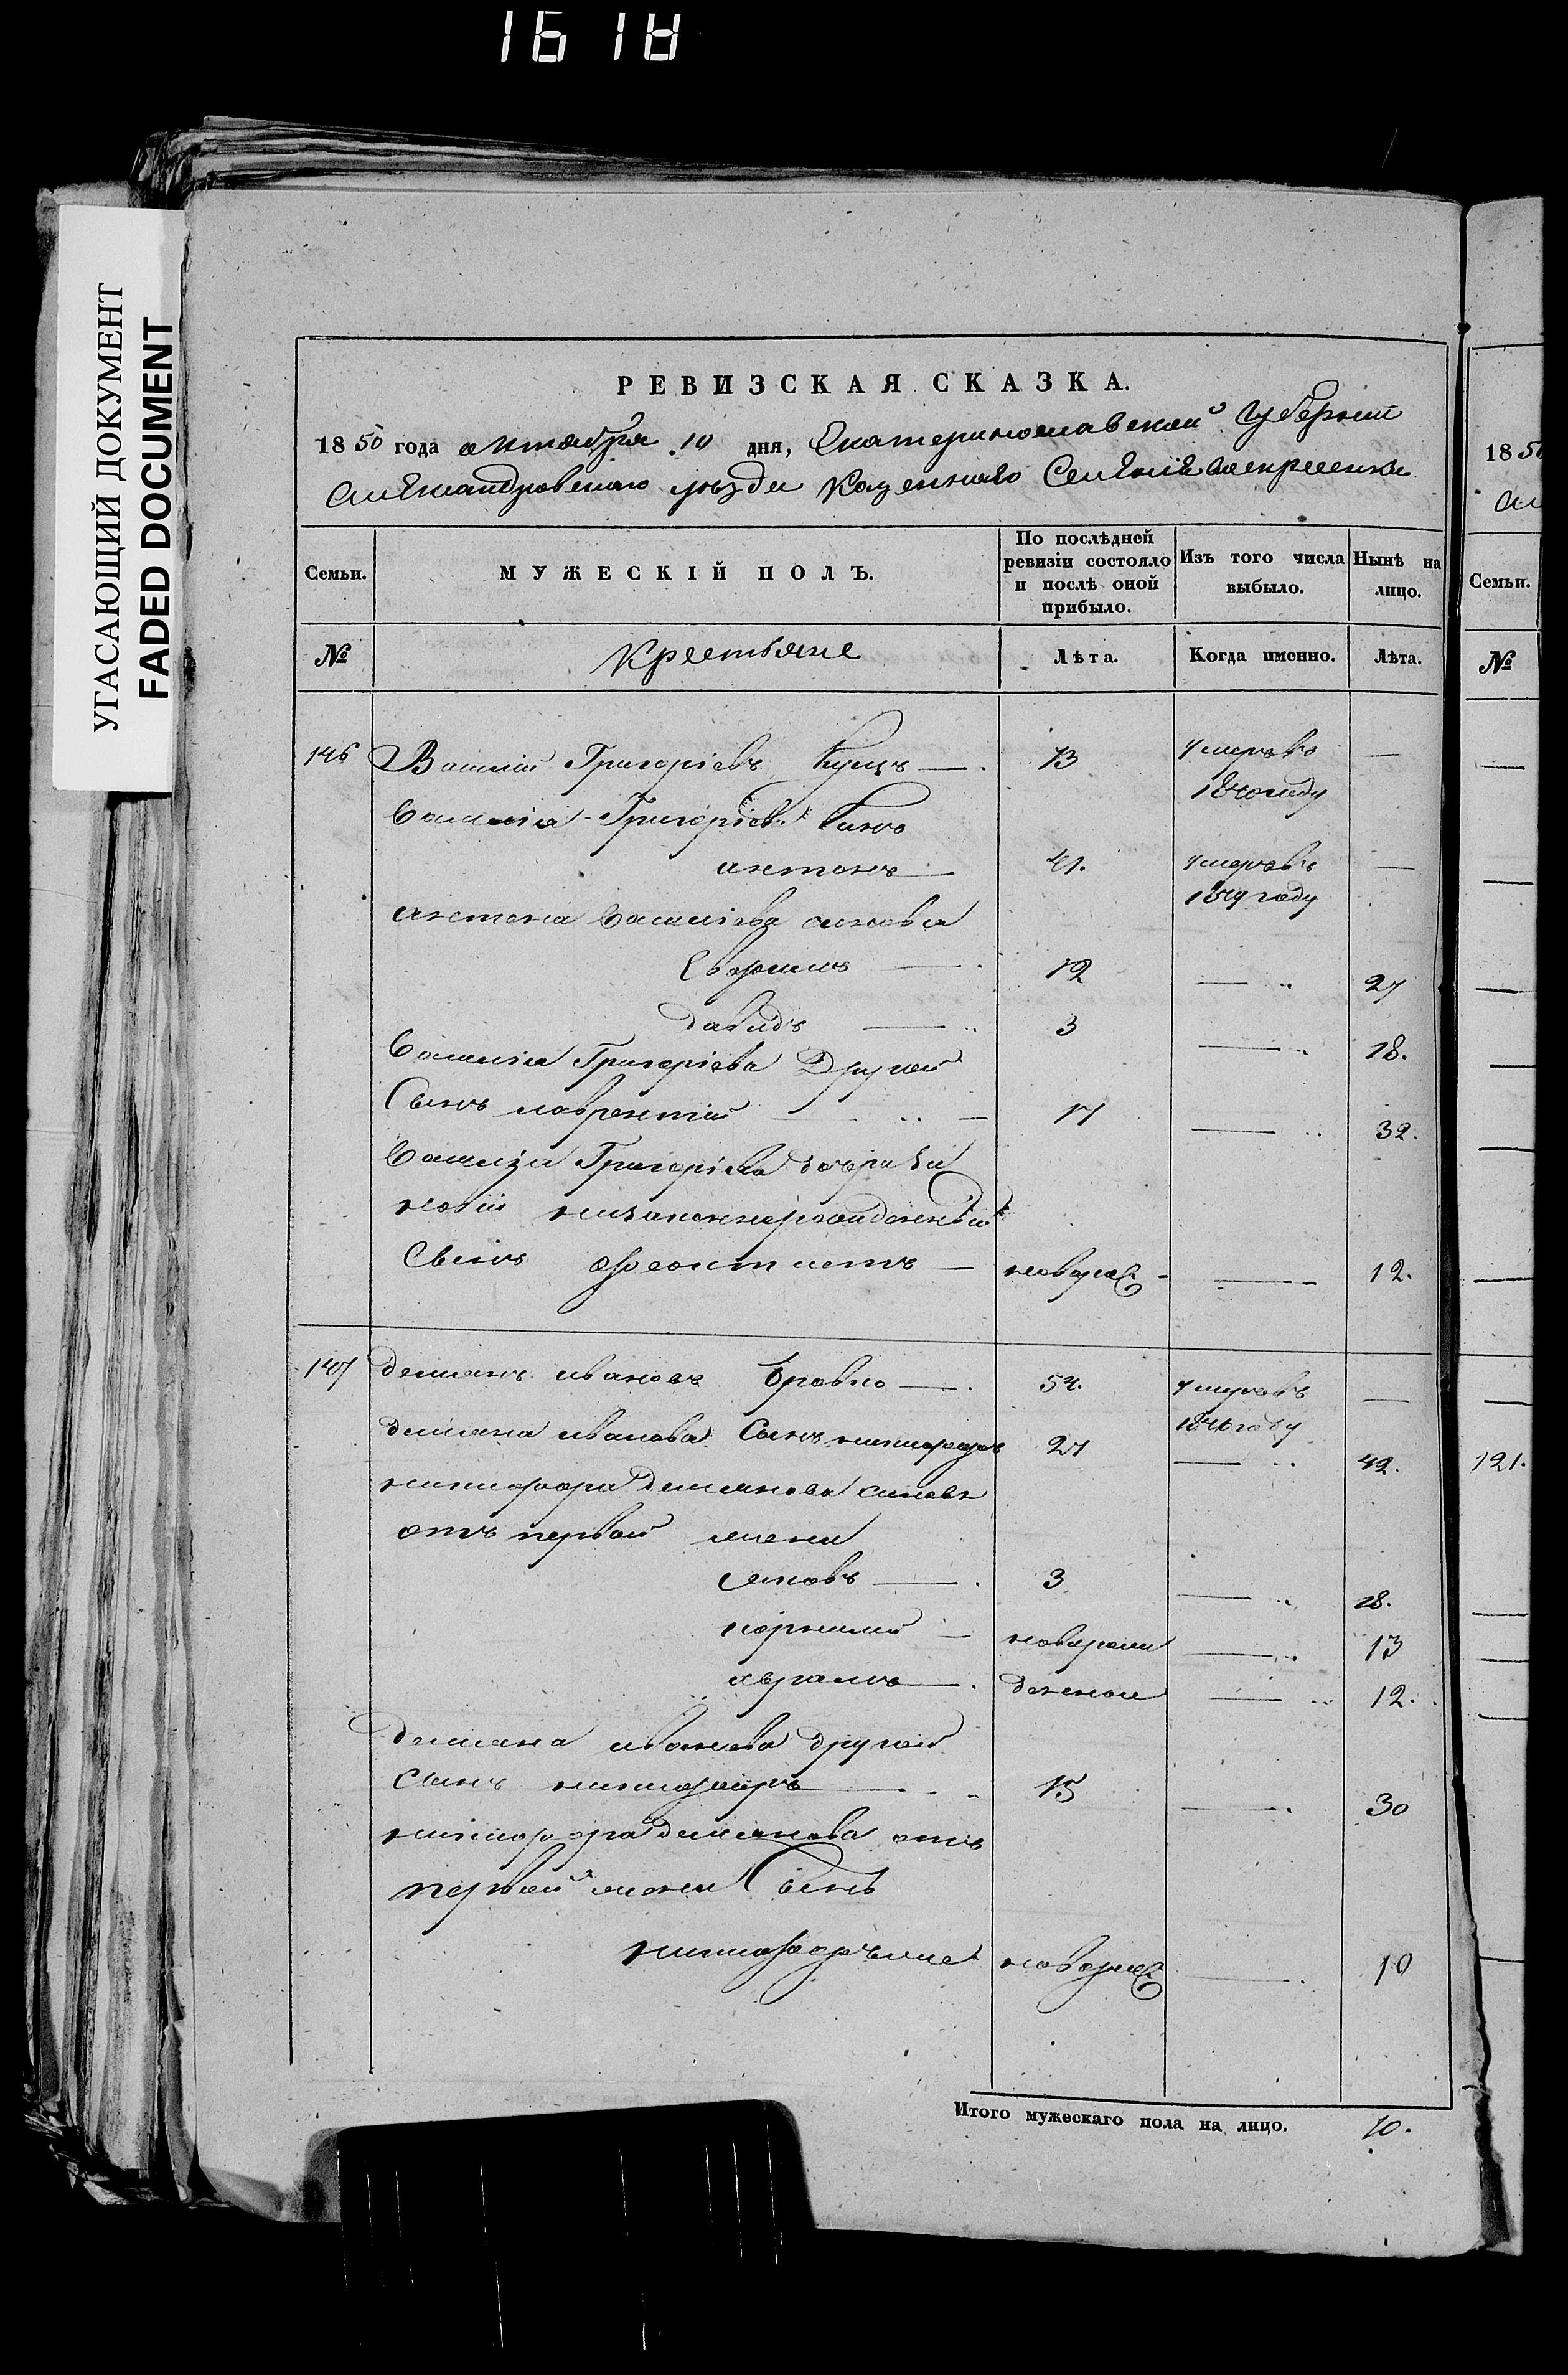 1618
УГАСАЮЩИЙ ДОКУМЕНТ
FADED DOCUMENT
РЕВИЗСКАЯ СКАЗКА.
1850 года октября 10 дня, Екатеринославской Губернии
Александровского уезда Казенного Селения Воскресенки
Семьи. МУЖЕСКІЙ ПОЛЪ. По послѣдней ревизіи состояло и послѣ оной прибыло. Изъ того числа выбыло. Нынѣ на лицо.
№ Крестьяне Лѣта. Когда именно. Лѣта.
146 Василій Григоріевъ Куцъ 73 умеръ въ —
1840 году
Василія Григоріева сынъ
антонъ 41. умеръ въ —
1849 году
антона Василіева сыновья
Ефримъ 12 — 27
давидъ 3 — 18.
Василія Григоріева Другой
Сынъ лаврентій 17 — 32.
Василія Григоріева дочери
незаконнорожденный
Сынъ феоктистъ — новорож — 12.
147 демянъ ивановъ Бровко 54. умеръ въ —
1846 году
демяна иванова Сынъ никифоръ 27 — 42.
никифора демянова сыновя
отъ первой жены
Яковъ 3 — 18.
корнилій новорож — 13
аврамъ денные — 12.
демяна иванова другой
Сынъ никифоръ 15 — 30
никифора демянова отъ
первой жены Сынъ
новорож — 10
Итого мужескаго пола на лицо. 10.
1850
Семьи.
№
121.